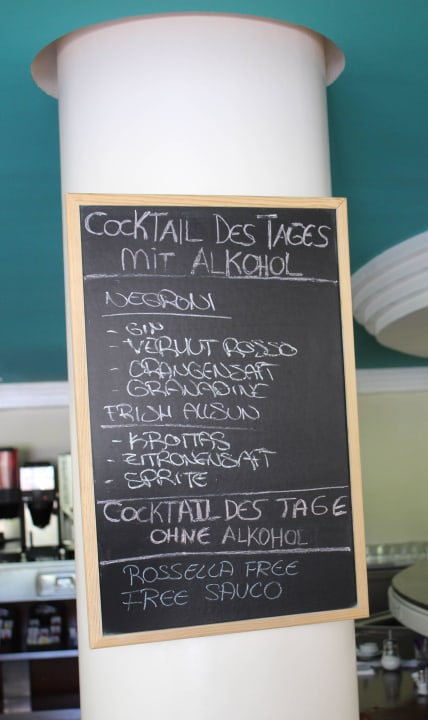 COCKTAIL DES TAGES
MIT ALKOHOL
NEGRONI
- GIN
- VERMUT ROSSO
- ORANGENSAFT
- GRANADINE
FRISH ALLSUN
- KROITAS
- ZITRONENSAFT
- SPRITE
COCKTAIL DES TAGE
OHNE ALKOHOL
ROSSELLA FREE
FREE SAUCO